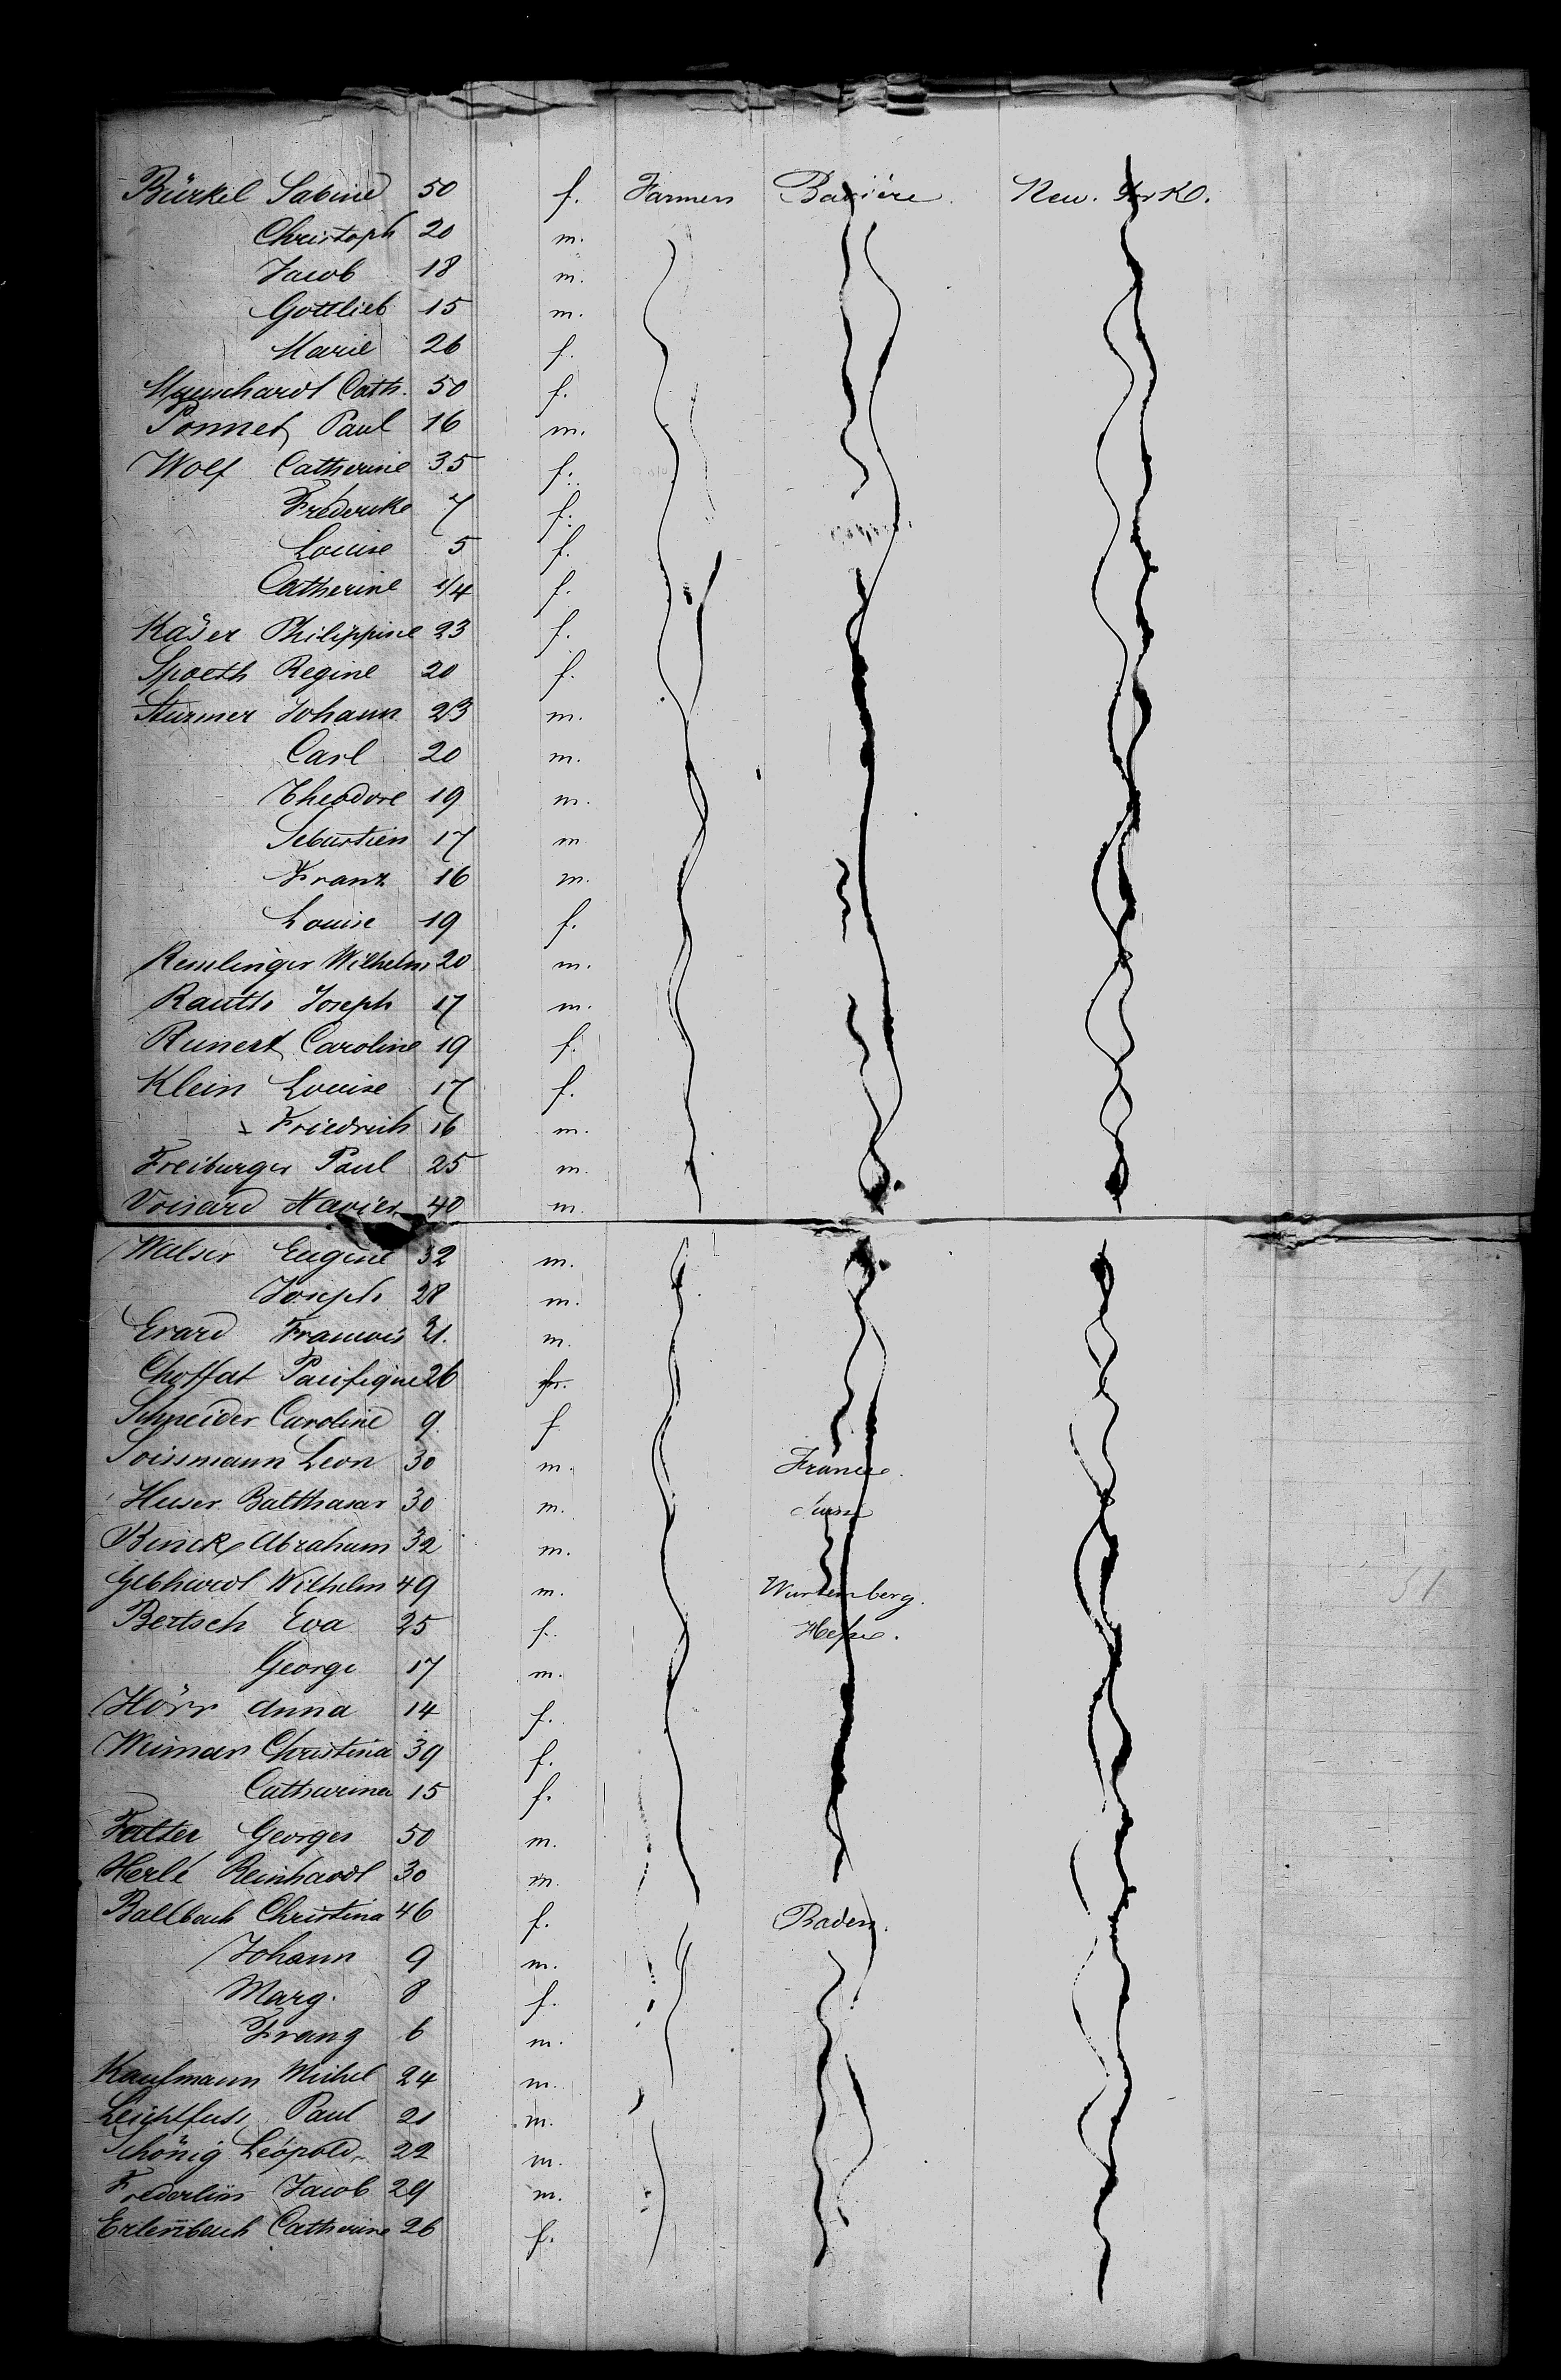 Bürkel Sabine 50 f. Farmers Bavière. New. York.
Christoph 20 m.
Jacob 18 m.
Gottlieb 15 m.
Marie 26 f.
Cath. 50 f.
Ponnet Paul 16 m.
Wolf Catherine 35 f.
Frederike 7 f.
Louise 5 f.
Catherine 1/4 f.
Käser Philippine 23 f.
Spaeth Regine 20 f.
Sturmer Johann 23 m.
Carl 20 m.
Theodore 19 m.
Sebastien 17 m
Franz 16 m.
Louise 19 f.
Remlinger Wilhelm 20 m.
Rauth Joseph 17 m.
Reinert Caroline 19 f.
Klein Louise 17 f.
Friedrich 16 m.
Freiburger Paul 25 m.
Voisard Xavier 40 m.
Walser Eugene 32 m.
Joseph 28 m.
Erard Francois 21. m.
Choffat Pacifique 26
Schneider Caroline 9. f
Soissmann Leon 30 m. France.
Huser Balthasar 30 m. Suisse
Abraham 32 m.
Gebhardt Wilhelm 49 m. Wurtemberg.
Bertsch Eva 25 f. Hesse.
George 17 m.
Hörr Anna 14 f.
Weimar Christina 39 f.
Catharina 15 f.
Georges 50 m.
Herlé Reinhardt 30 m.
Ballbach Christina 46 f. Baden.
Johann 9 m.
Marg. 8 f.
Franz 6 m.
Kaufmann Michel 24 m.
Leichtfuss Paul 21 m.
Schönig Léopold 22 m.
Jacob 29 m.
Erlenbach Catherine 26 f.
51